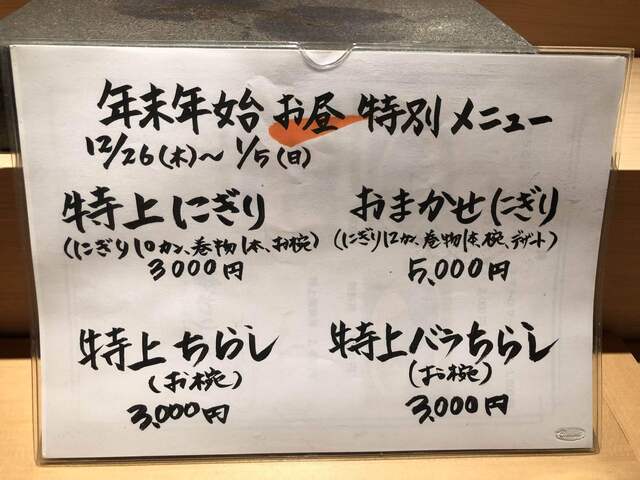 年末年始 お昼 特別メニュー
12/26(木)〜1/5(日)
特上にぎり
(にぎり10カン、巻物1本、お椀)
3000円
おまかせにぎり
(にぎり12カン、巻物1本、椀、デザート)
5,000円
特上ちらし
(お椀)
3,000円
特上バラちらし
(お椀)
3,000円